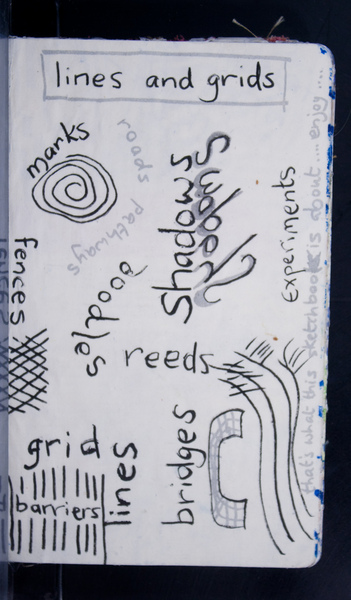 lines and grids
marks
roads
pathways
shadows
experiments
fences
doodles
reeds
grid
lines
barriers
bridges
that's what this sketchbook is about.... enjoy....